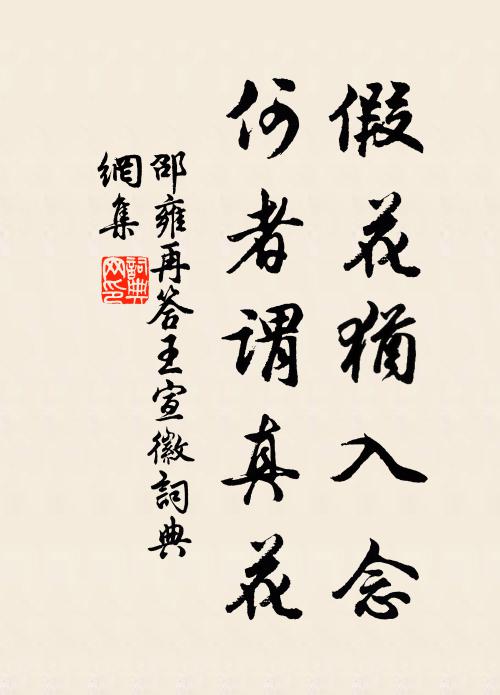 假花猶入念
何者謂真花
邵雍再答王宣徽詞典
網集
詞典
网印